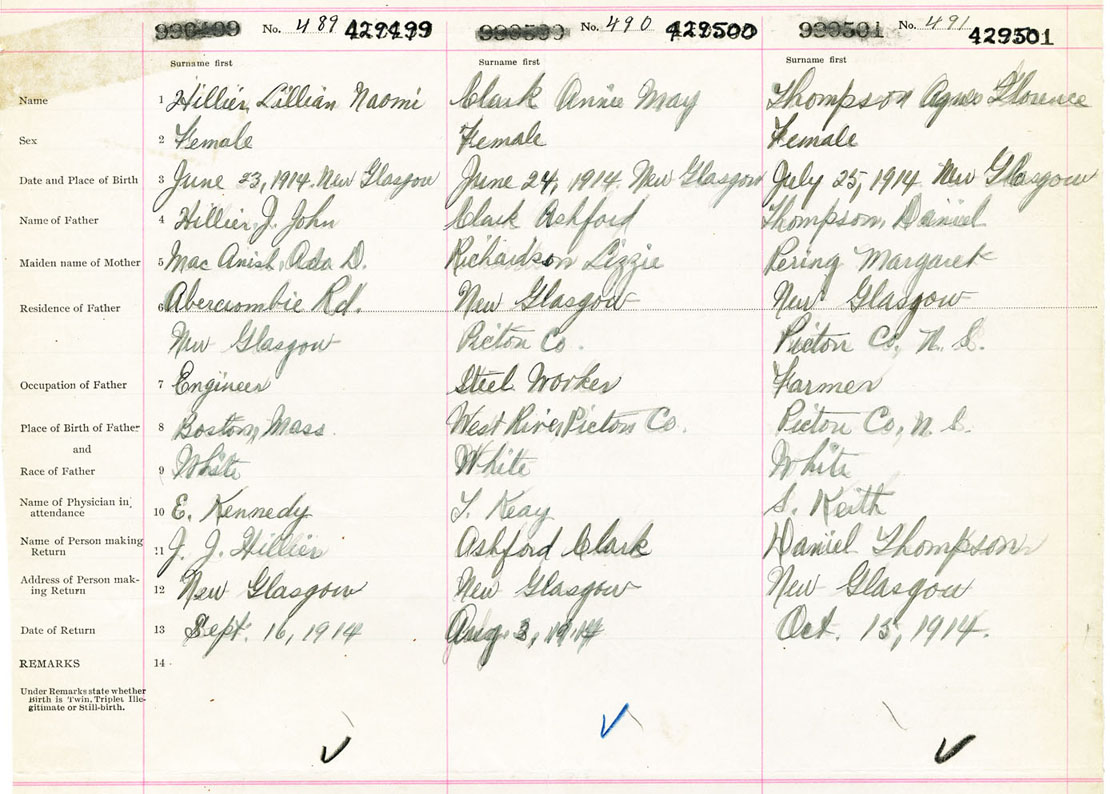 No. 489 429499 No. 490 429500 No. 491 429501
Surname first Surname first Surname first
Name 1 Hillier, Lillian Naomi Clark Annie May Thompson Agnes Florence
Sex 2 Female Female Female
Date and Place of Birth 3 June 23, 1914. New Glasgow June 24, 1914. New Glasgow July 25, 1914. New Glasgow
Name of Father 4 Hillier, J. John Clark Ashford Thompson, Daniel
Maiden name of Mother 5 Mac Anish, Ada D. Richardson Lizzie Pering Margaret
Residence of Father 6 Abercrombie Rd. New Glasgow New Glasgow
New Glasgow Picton Co. Picton Co, N. S.
Occupation of Father 7 Engineer Steel Worker Farmer
Place of Birth of Father 8 Boston, Mass. West River, Picton Co. Picton Co, N. S.
and
Race of Father 9 White White White
Name of Physician in attendance 10 E. Kennedy T. Keay S. Keith
Name of Person making Return 11 J. J. Hillier Ashford Clark Daniel Thompson
Address of Person making Return 12 New Glasgow New Glasgow New Glasgow
Date of Return 13 Sept. 16, 1914 Aug. 3, 1914 Oct. 15, 1914.
REMARKS 14
Under Remarks state whether
Birth is Twin, Triplet Ille-
gitimate or Still-birth.